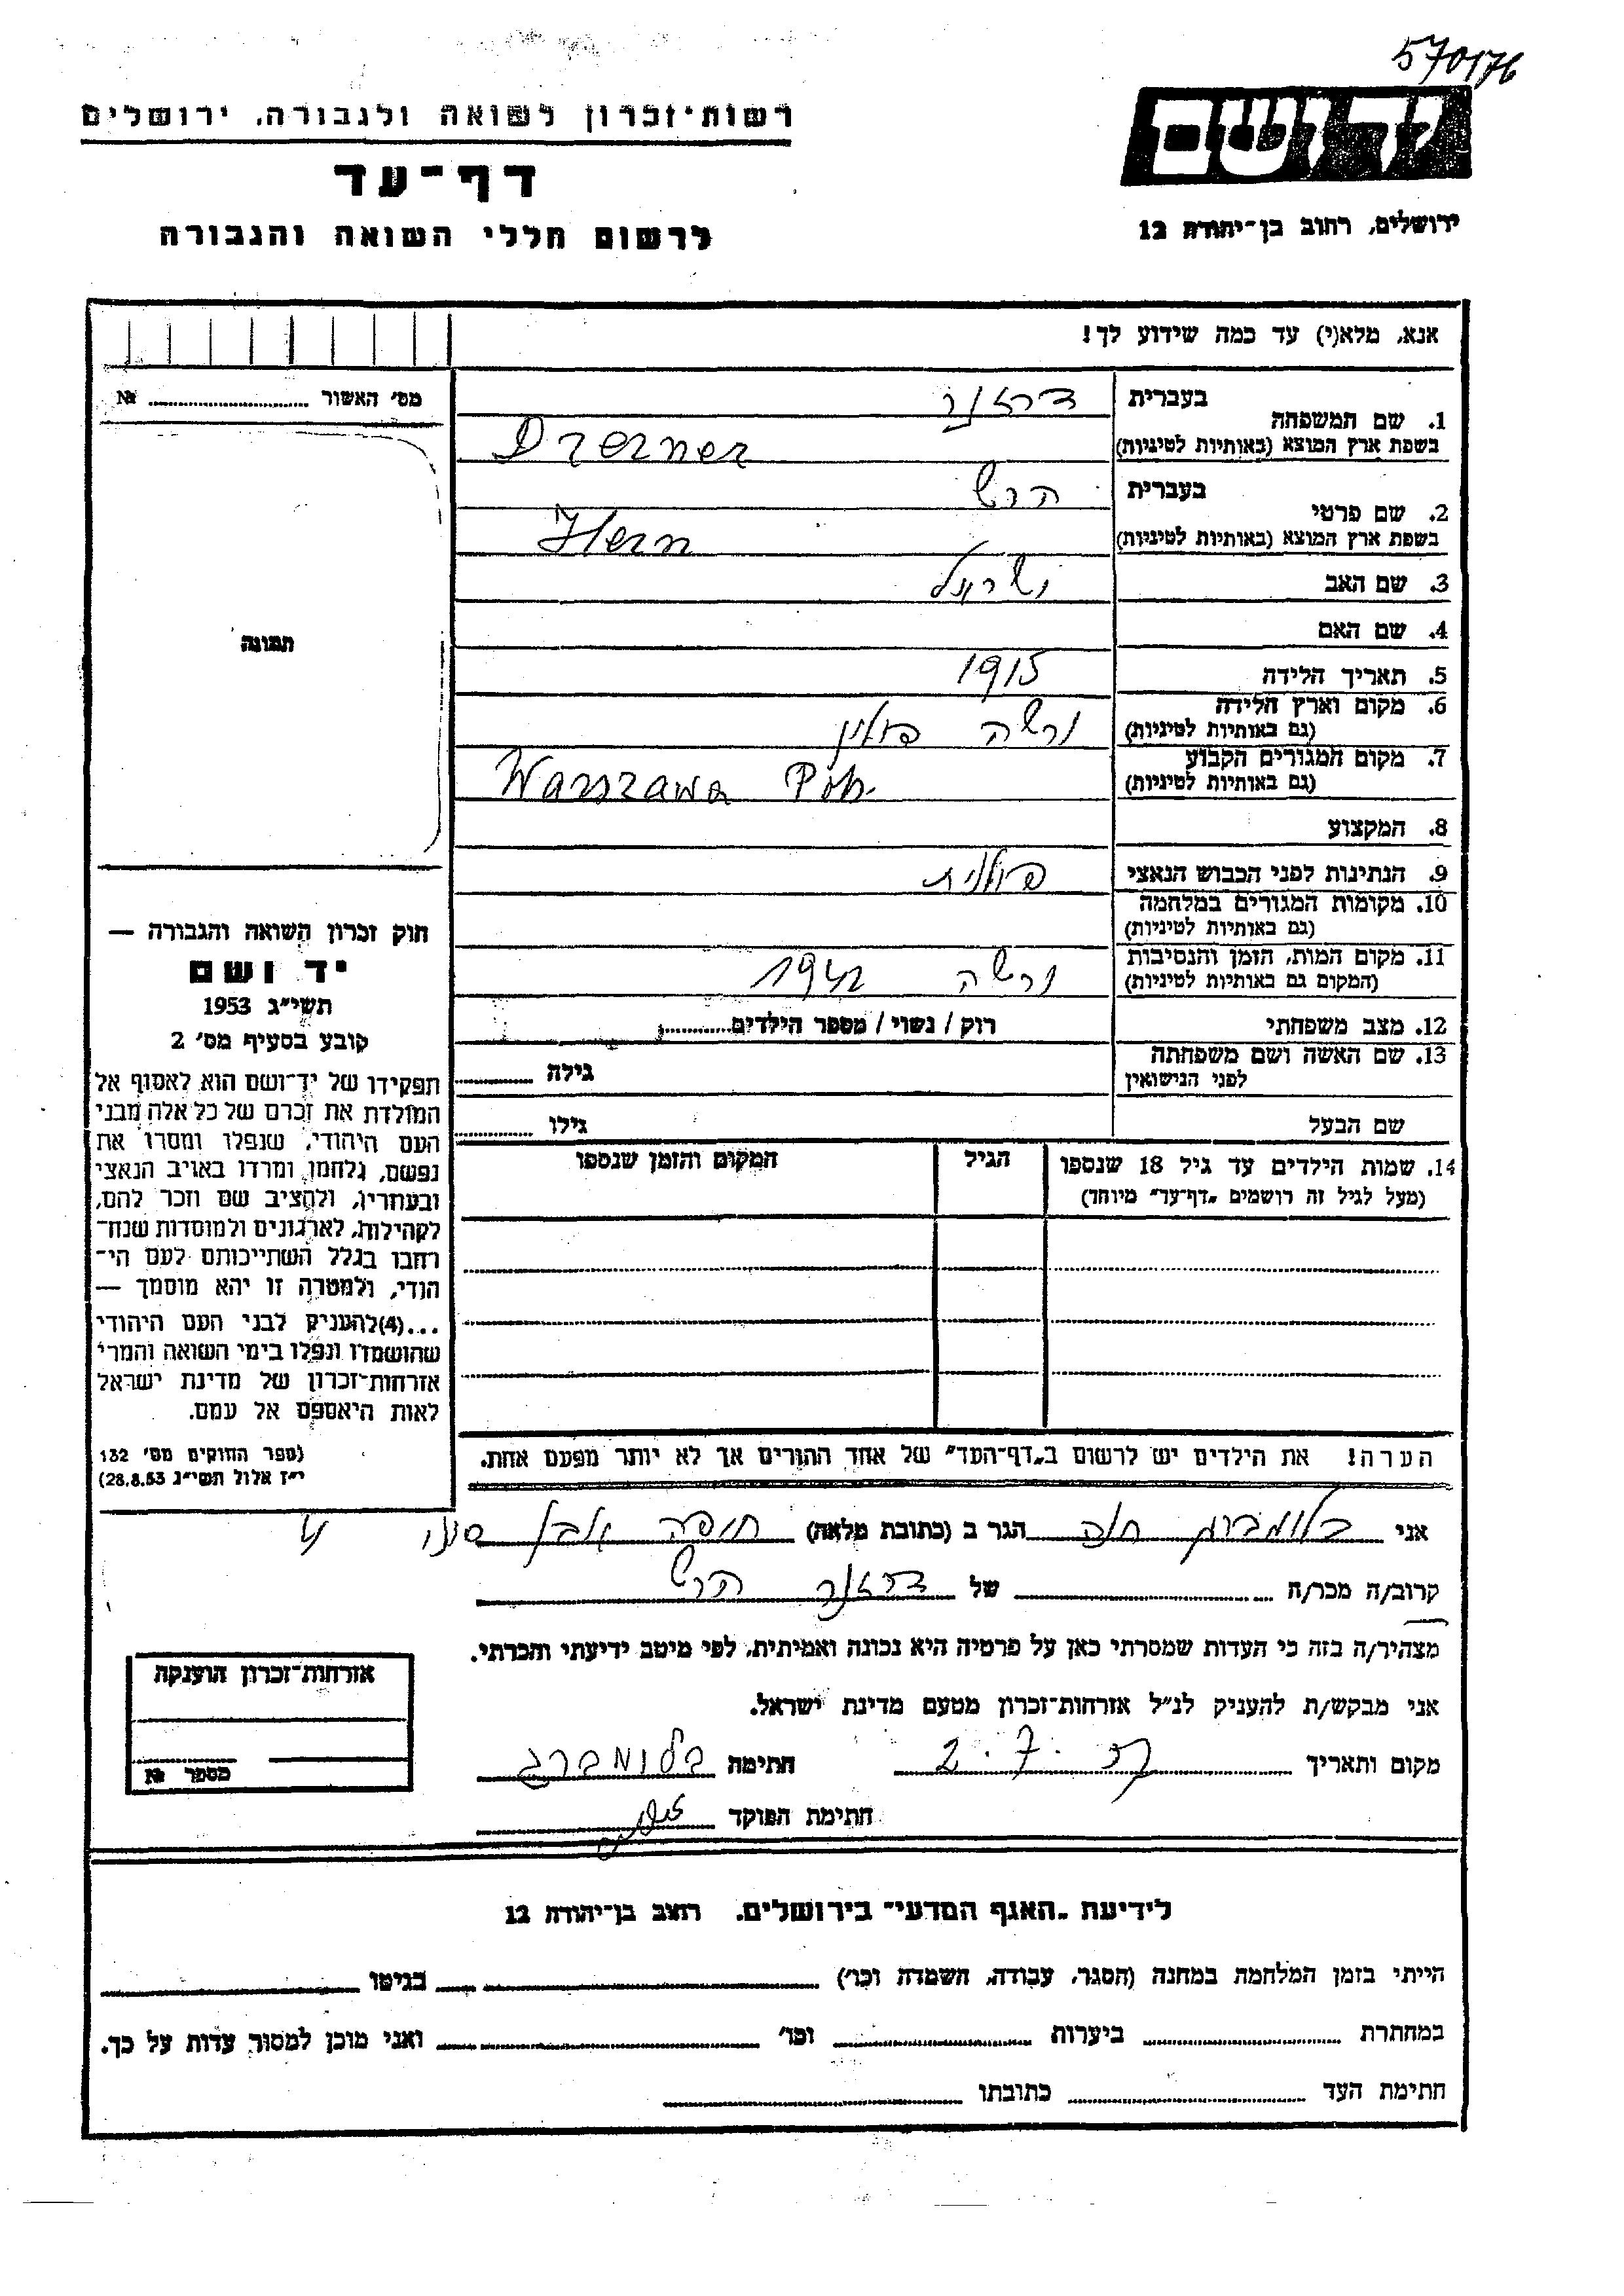 570176
יד ושם
רשות-זכרון לשואה ולגבורה, ירושלים
דף-עד
לרשום חללי השואה והגבורה
ירושלים, רחוב בן-יהודה 12
אנא, מלא(י) עד כמה שידוע לך!
מס׳ האשור № 
1. שם המשפחה בעברית
דרזנר
בשפת ארץ המוצא (באותיות לטיניות)
Drezner
2. שם פרטי בעברית
הרש
בשפת ארץ המוצא (באותיות לטיניות)
3. שם האב
ישראל
4. שם האם
5. תאריך הלידה
1915
6. מקום וארץ הלידה
(גם באותיות לטיניות)
ורשה פולין
7. מקום המגורים הקבוע
(גם באותיות לטיניות)
Warszawa Pol.
8. המקצוע
9. הנתינות לפני הכבוש הנאצי
פולנית
10. מקומות המגורים במלחמה
(גם באותיות לטיניות)
11. מקום המות, הזמן והנסיבות
(המקום גם באותיות לטיניות)
ורשה 1942
12. מצב משפחתי
רוק / נשוי / מספר הילדים
13. שם האשה ושם משפחתה
לפני הנישואין
גילה
שם הבעל
גילו
14. שמות הילדים עד גיל 18 שנספו
(מעל לגיל זה רושמים „דף-עד״ מיוחד)
הגיל
המקום והזמן שנספו
תמונה
חוק זכרון השואה והגבורה —
יד ושם
תשי״ג 1953
קובע בסעיף מס׳ 2
תפקידו של יד-ושם הוא לאסוף אל
המולדת את זכרם של כל אלה מבני
העם היהודי, שנפלו ומסרו את
נפשם, נלחמו ומרדו באויב הנאצי
ובעוזריו, ולהציב שם וזכר להם,
לקהילות, לארגונים ולמוסדות שנח-
רחבו בגלל השתייכותם לעם הי-
הודי, ולמטרה זו יהא מוסמך —
...(4)להעניק לבני העם היהודי
שהושמדו ונפלו בימי השואה והמרי
אזרחות-זכרון של מדינת ישראל
לאות היאספם אל עמם.
(ספר החוקים מס׳ 132
י״ז אלול תשי״ג 28.8.53)
הערה! את הילדים יש לרשום ב„דף-העד״ של אחד ההורים אך לא יותר מפעם אחת.
אני בלומברג חנה הגר ב (כתובת מלאה) חיפה אבן
קרוב/ה מכר/ה של דרזנר הרש
מצהיר/ה בזה כי העדות שמסרתי כאן על פרטיה היא נכונה ואמיתית, לפי מיטב ידיעתי והכרתי.
אני מבקש/ת להעניק לנ״ל אזרחות-זכרון מטעם מדינת ישראל.
מקום ותאריך 2.7. חתימה בלומברג
חתימת הפוקד
אזרחות-זכרון הוענקה
מספר №
לידיעת „האגף המדעי״ בירושלים. רחוב בן-יהודה 12
הייתי בזמן המלחמה במחנה (הסגר, עבודה, השמדה וכו׳) בגיטו
במחתרת ביערות וכו׳ ואני מוכן למסור עדות על כך.
חתימת העד כתובתו